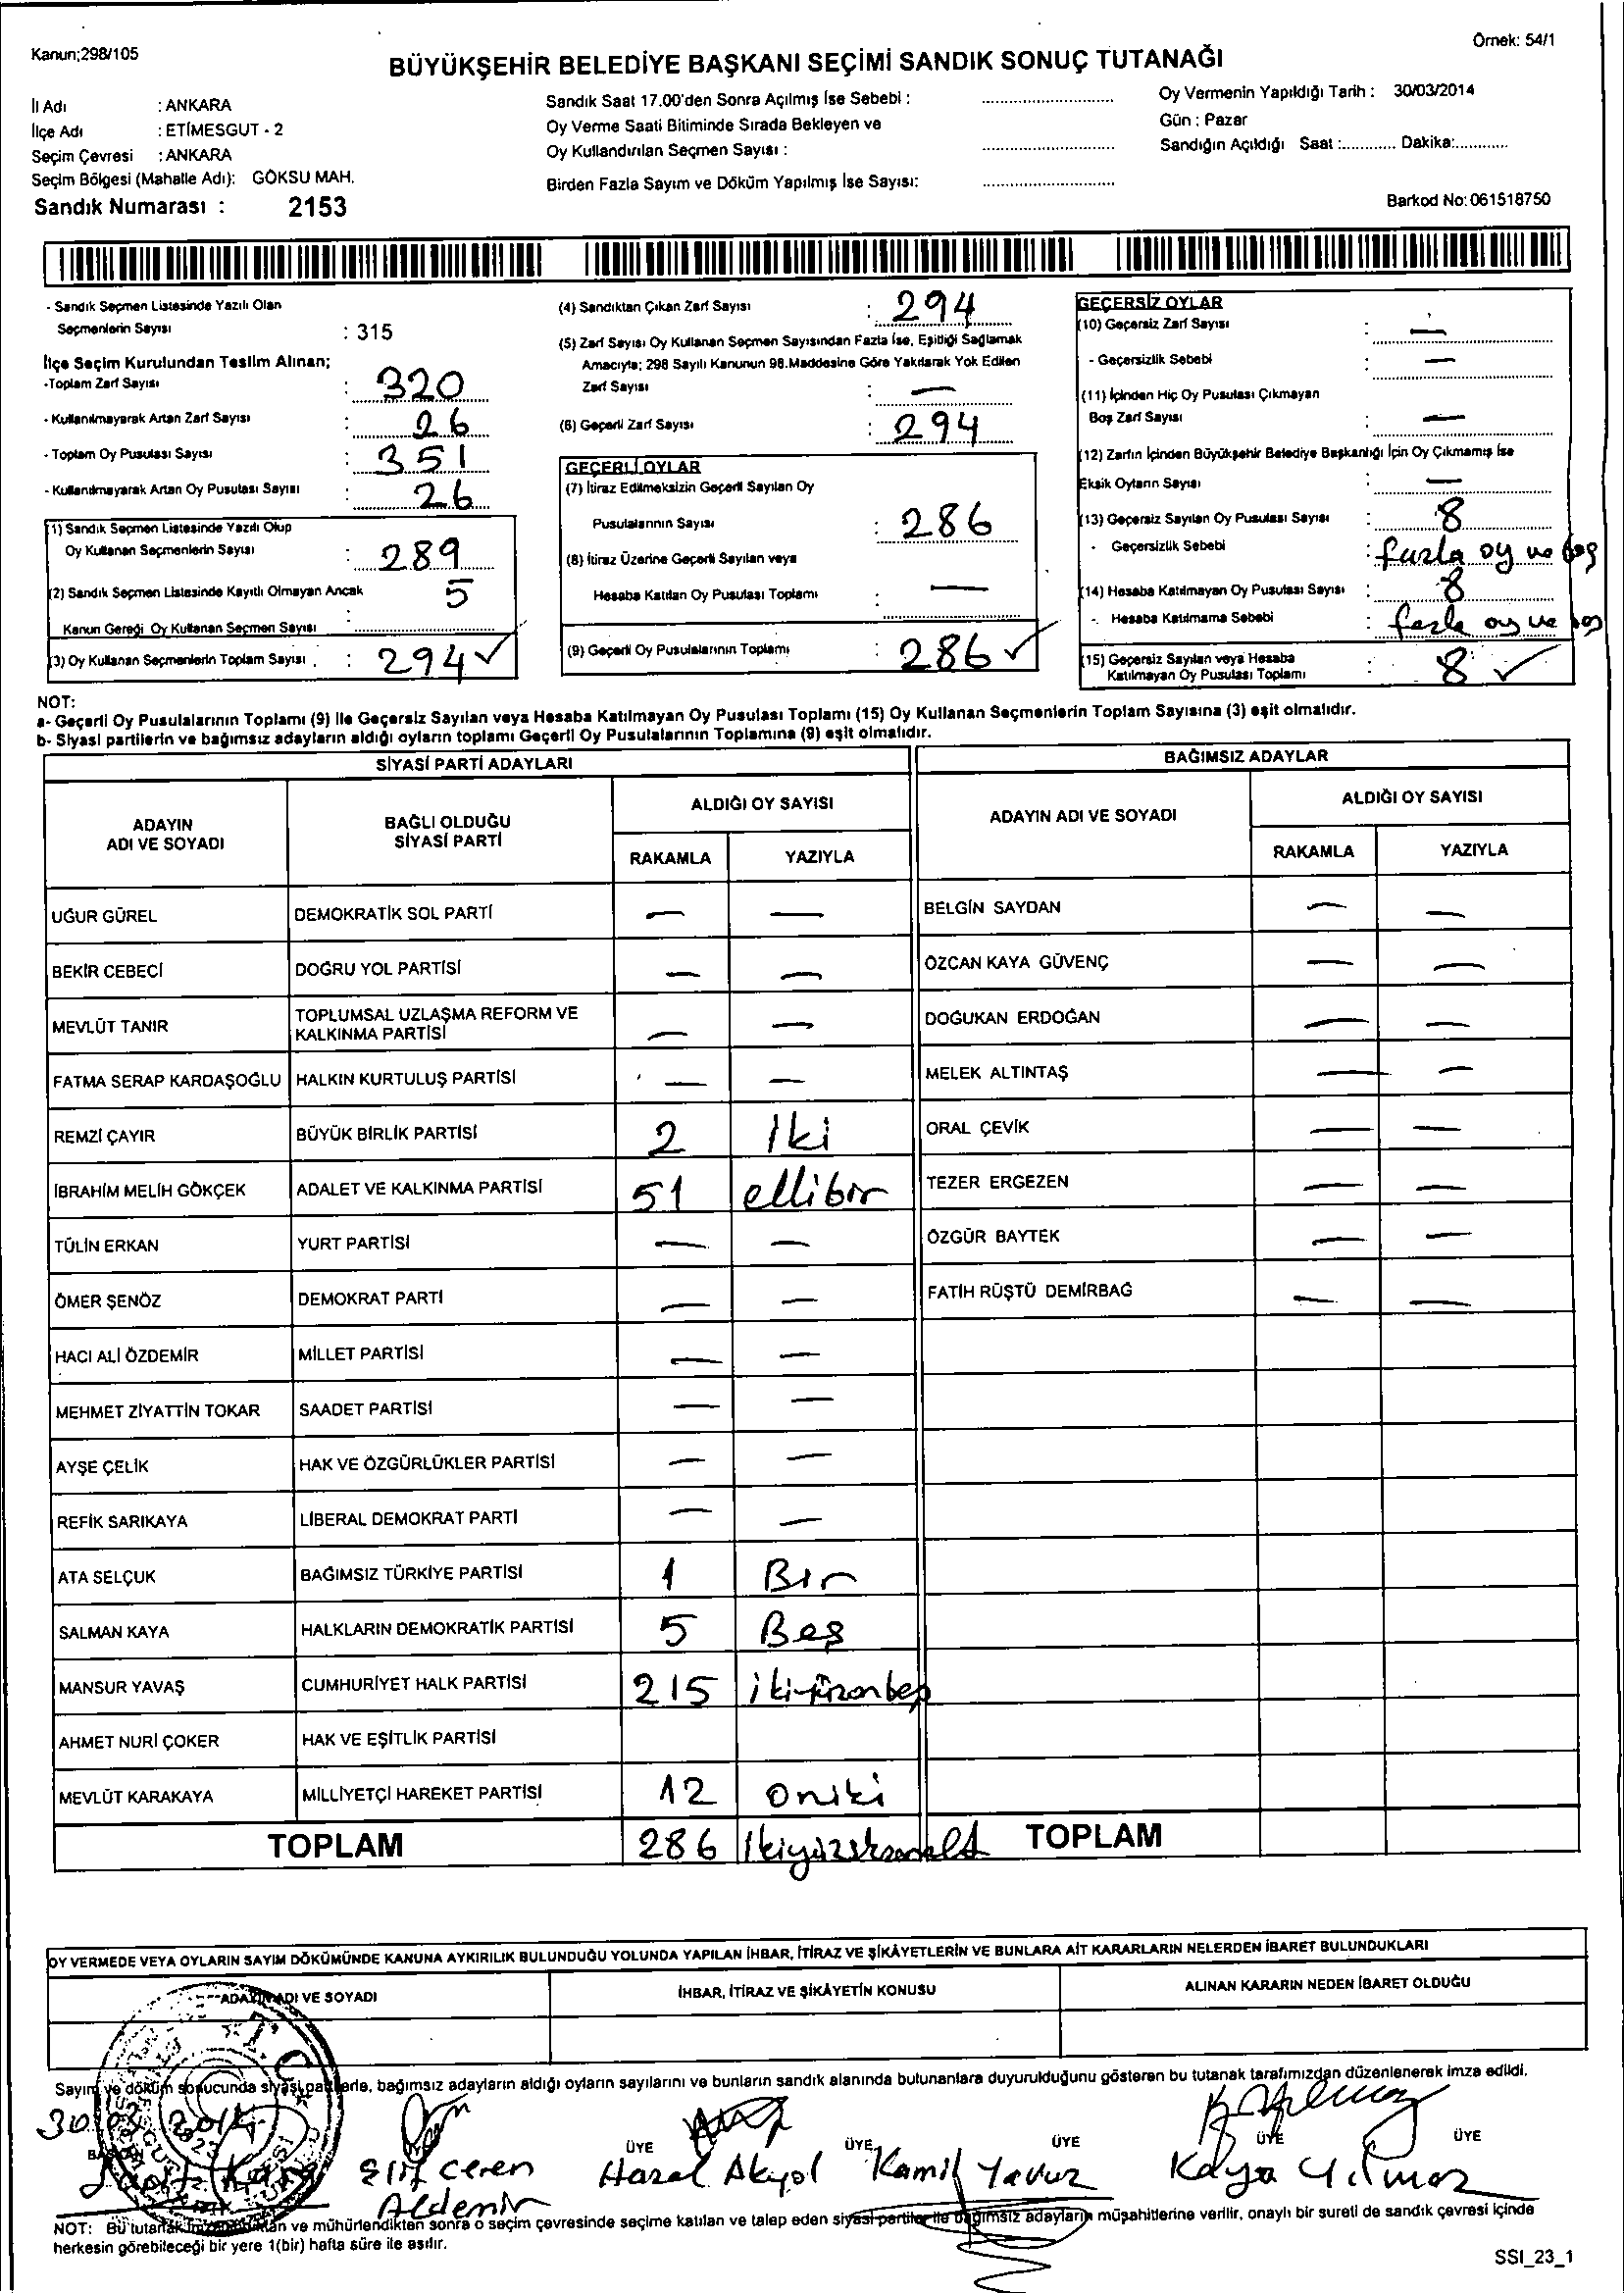 Kanun;298/105
Örnek: 54/1
BÜYÜKŞEHİR BELEDİYE BAŞKANI SEÇİMİ SANDIK SONUÇ TUTANAĞI
İl Adı : ANKARA
İlçe Adı : ETİMESGUT - 2
Seçim Çevresi : ANKARA
Seçim Bölgesi (Mahalle Adı): GÖKSU MAH.
Sandık Numarası : 2153
Sandık Saat 17.00'den Sonra Açılmış İse Sebebi :
Oy Verme Saati Bitiminde Sırada Bekleyen ve
Oy Kullandırılan Seçmen Sayısı :
Birden Fazla Sayım ve Döküm Yapılmış İse Sayısı:
Oy Vermenin Yapıldığı Tarih : 30/03/2014
Gün : Pazar
Sandığın Açıldığı Saat :............ Dakika:............
Barkod No:061518750
- Sandık Seçmen Listesinde Yazılı Olan
Seçmenlerin Sayısı : 315
İlçe Seçim Kurulundan Teslim Alınan;
-Toplam Zarf Sayısı : 320
- Kullanılmayarak Artan Zarf Sayısı : 26
- Toplam Oy Pusulası Sayısı : 351
- Kullanılmayarak Artan Oy Pusulası Sayısı : 26
(1) Sandık Seçmen Listesinde Yazılı Olup
Oy Kullanan Seçmenlerin Sayısı : 289
(2) Sandık Seçmen Listesinde Kayıtlı Olmayan Ancak
Kanun Gereği Oy Kullanan Seçmen Sayısı : 5
(3) Oy Kullanan Seçmenlerin Toplam Sayısı : 294 ✓
(4) Sandıktan Çıkan Zarf Sayısı : 294
(5) Zarf Sayısı Oy Kullanan Seçmen Sayısından Fazla İse, Eşitliği Sağlamak
Amacıyla; 298 Sayılı Kanunun 98.Maddesine Göre Yakılarak Yok Edilen
Zarf Sayısı : —
(6) Geçerli Zarf Sayısı : 294
GEÇERLİ OYLAR
(7) İtiraz Edilmeksizin Geçerli Sayılan Oy
Pusulalarının Sayısı : 286
(8) İtiraz Üzerine Geçerli Sayılan veya
Hesaba Katılan Oy Pusulası Toplamı : —
(9) Geçerli Oy Pusulalarının Toplamı : 286 ✓
GEÇERSİZ OYLAR
(10) Geçersiz Zarf Sayısı : —
- Geçersizlik Sebebi : —
(11) İçinden Hiç Oy Pusulası Çıkmayan
Boş Zarf Sayısı : —
(12) Zarfın İçinden Büyükşehir Belediye Başkanlığı İçin Oy Çıkmamış İse
Eksik Oyların Sayısı : —
(13) Geçersiz Sayılan Oy Pusulası Sayısı : 8
- Geçersizlik Sebebi : fazla oy ve boş
(14) Hesaba Katılmayan Oy Pusulası Sayısı : 8
- Hesaba Katılmama Sebebi : fazla oy ve boş
(15) Geçersiz Sayılan veya Hesaba
Katılmayan Oy Pusulası Toplamı : 8 ✓
NOT:
a- Geçerli Oy Pusulalarının Toplamı (9) ile Geçersiz Sayılan veya Hesaba Katılmayan Oy Pusulası Toplamı (15) Oy Kullanan Seçmenlerin Toplam Sayısına (3) eşit olmalıdır.
b- Siyasi partilerin ve bağımsız adayların aldığı oyların toplamı Geçerli Oy Pusulalarının Toplamına (9) eşit olmalıdır.
SİYASİ PARTİ ADAYLARI
ADAYIN ADI VE SOYADI
BAĞLI OLDUĞU SİYASİ PARTİ
ALDIĞI OY SAYISI
RAKAMLA YAZIYLA
UĞUR GÜREL DEMOKRATİK SOL PARTİ — —
BEKİR CEBECİ DOĞRU YOL PARTİSİ — —
MEVLÜT TANIR TOPLUMSAL UZLAŞMA REFORM VE KALKINMA PARTİSİ — —
FATMA SERAP KARDAŞOĞLU HALKIN KURTULUŞ PARTİSİ — —
REMZİ ÇAYIR BÜYÜK BİRLİK PARTİSİ 2 Iki
İBRAHİM MELİH GÖKÇEK ADALET VE KALKINMA PARTİSİ 51 ellibir
TÜLİN ERKAN YURT PARTİSİ — —
ÖMER ŞENÖZ DEMOKRAT PARTİ — —
HACI ALİ ÖZDEMİR MİLLET PARTİSİ — —
MEHMET ZİYATTİN TOKAR SAADET PARTİSİ — —
AYŞE ÇELİK HAK VE ÖZGÜRLÜKLER PARTİSİ — —
REFİK SARIKAYA LİBERAL DEMOKRAT PARTİ — —
ATA SELÇUK BAĞIMSIZ TÜRKİYE PARTİSİ 1 Bır
SALMAN KAYA HALKLARIN DEMOKRATİK PARTİSİ 5 Beş
MANSUR YAVAŞ CUMHURİYET HALK PARTİSİ 215 ikiyüzonbeş
AHMET NURİ ÇOKER HAK VE EŞİTLİK PARTİSİ
MEVLÜT KARAKAYA MİLLİYETÇİ HAREKET PARTİSİ 12 oniki
TOPLAM 286 Ikiyüzseksenaltı
BAĞIMSIZ ADAYLAR
ADAYIN ADI VE SOYADI
ALDIĞI OY SAYISI
RAKAMLA YAZIYLA
BELGİN SAYDAN — —
ÖZCAN KAYA GÜVENÇ — —
DOĞUKAN ERDOĞAN — —
MELEK ALTINTAŞ — —
ORAL ÇEVİK — —
TEZER ERGEZEN — —
ÖZGÜR BAYTEK — —
FATİH RÜŞTÜ DEMİRBAĞ — —
TOPLAM
OY VERMEDE VEYA OYLARIN SAYIM DÖKÜMÜNDE KANUNA AYKIRILIK BULUNDUĞU YOLUNDA YAPILAN İHBAR, İTİRAZ VE ŞİKÂYETLERİN VE BUNLARA AİT KARARLARIN NELERDEN İBARET BULUNDUKLARI
ADAYIN ADI VE SOYADI
İHBAR, İTİRAZ VE ŞİKÂYETİN KONUSU
ALINAN KARARIN NEDEN İBARET OLDUĞU
Sayım ve döküm sonucunda siyasi partilerle, bağımsız adayların aldığı oyların sayılarını ve bunların sandık alanında bulunanlara duyurulduğunu gösteren bu tutanak tarafımızdan düzenlenerek imza edildi.
T.C.
ÜYE ÜYE ÜYE ÜYE ÜYE
Elif Ceren Aldemir
Hazal Akyol
Kamil Yavuz
Kaya Yılmaz
NOT: Bu tutanak imzalandıktan ve mühürlendikten sonra o seçim çevresinde seçime katılan ve talep eden siyasi partiler ile bağımsız adayların müşahitlerine verilir, onaylı bir sureti de sandık çevresi içinde
herkesin görebileceği bir yere 1(bir) hafta süre ile asılır.
SSI_23_1